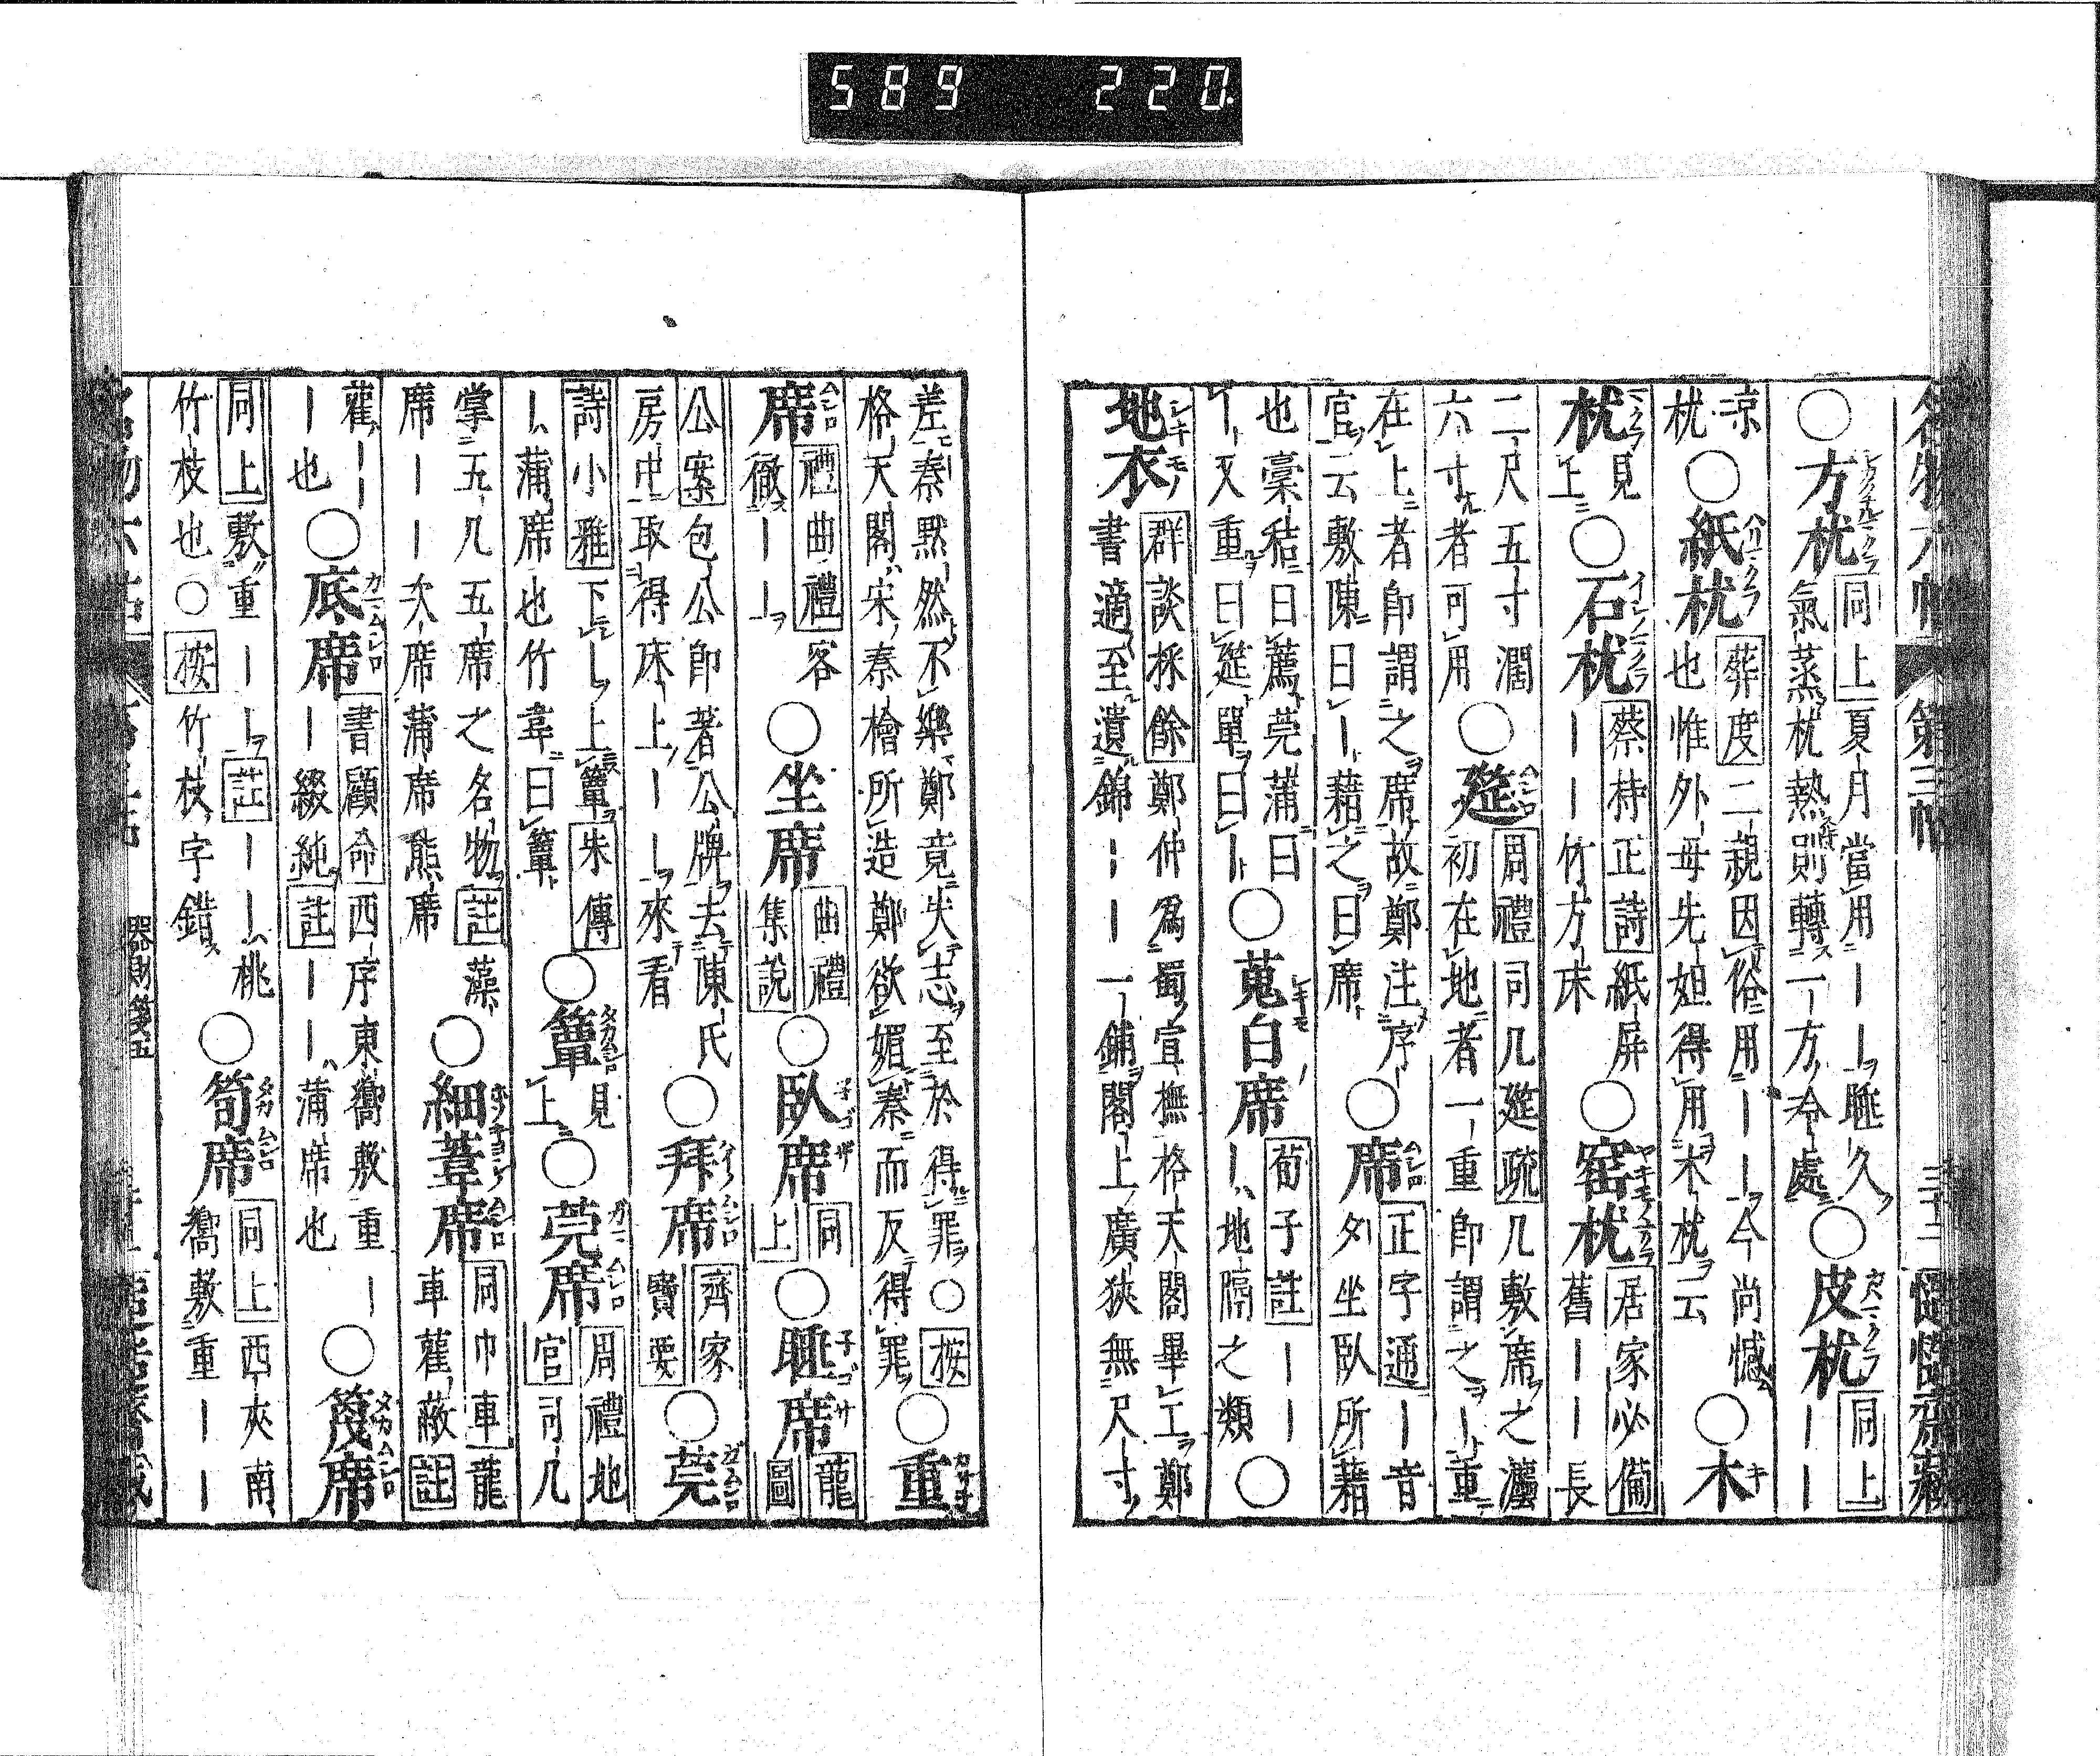 名物六帖　第三帖　三十二　慥慥齋藏
○方枕 同上夏月當用｜｜睡久
氣蒸枕熱則轉一方令處 ○皮枕 同上｜｜
涼枕○紙枕 葬度二親因俗用｜｜今尚憾
也惟外母先妲得用木枕云 ○木
枕 見上 ○石枕 蔡持正詩紙屏
｜｜竹方床 ○窑枕 居家必備舊｜｜長
二尺五寸濶
六寸者可用 ○筵 周禮司几筵疏几敷席之灋
初在地者一重即謂之｜重
在上者即謂之席故鄭注序
官云敷陳曰｜藉之曰席 ○席 正字通｜音
夕坐臥所藉
也藁秸曰薦莞蒲曰
｜又重曰筵單曰｜ ○蒐白席 荀子註｜｜
｜地隔之類 ○
地衣 群談採餘鄭仲為蜀宣撫格天閣畢工鄭
書適至遺錦｜｜一鋪閣上廣狹無尺寸
差秦默然不樂鄭竟失志至於得罪○按
格天閣宋秦檜所造鄭欲媚秦而反得罪 ○重
席 禮曲禮客
徹｜｜ ○坐席 曲禮集說 ○臥席 同上 ○睡席 龍圖
公案包公即著公牌去陳氏
房中取得床上｜｜來看 ○拜席 齊家寶要 ○莞
詩小雅下｜上簟朱傳
｜蒲席也竹葦曰簟 ○簟 見上 ○莞席 周禮地官司几
掌五几五席之名物註藻
席｜｜次席蒲席熊席 ○細葦席 同巾車龍
車雚蔽註
雚｜｜
｜也 ○底席 書顧命西序東嚮敷重｜
｜綴純註｜｜蒲席也 ○篾席
同上敷重｜｜註｜｜桃
竹枝也○按竹枝字錯 ○筍席 同上西夾南
嚮敷重｜｜
器財箋五
589 220